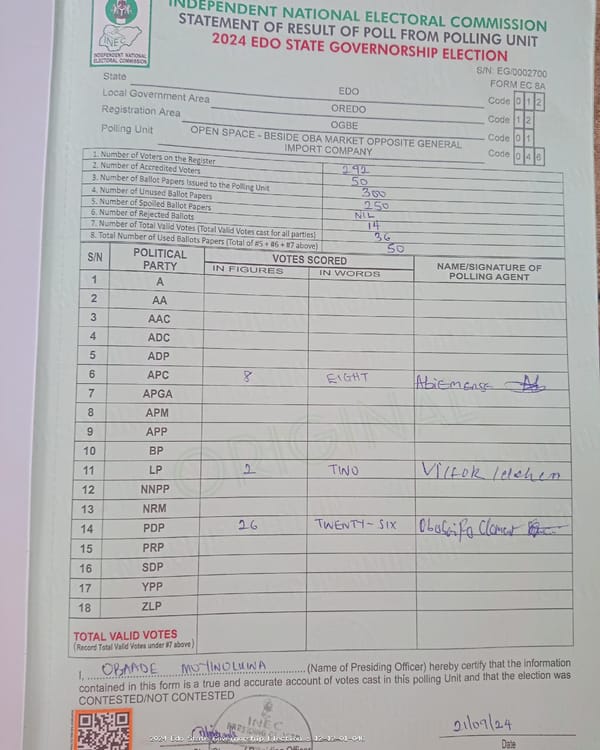 INDEPENDENT NATIONAL ELECTORAL COMMISSION
STATEMENT OF RESULT OF POLL FROM POLLING UNIT
2024 EDO STATE GOVERNORSHIP ELECTION
INEC
INDEPENDENT NATIONAL
ELECTORAL COMMISSION
S/N: EG/0002700
FORM EC 8A
State EDO Code 0 1 2
Local Government Area OREDO Code 1 2
Registration Area OGBE Code 0 1
Polling Unit OPEN SPACE - BESIDE OBA MARKET OPPOSITE GENERAL IMPORT COMPANY Code 0 4 6
1. Number of Voters on the Register 292
2. Number of Accredited Voters 50
3. Number of Ballot Papers Issued to the Polling Unit 300
4. Number of Unused Ballot Papers 250
5. Number of Spoiled Ballot Papers NIL
6. Number of Rejected Ballots 14
7. Number of Total Valid Votes (Total Valid Votes cast for all parties) 36
8. Total Number of Used Ballots Papers (Total of #5 + #6 + #7 above) 50
S/N POLITICAL PARTY VOTES SCORED NAME/SIGNATURE OF POLLING AGENT
IN FIGURES IN WORDS
1 A
2 AA
3 AAC
4 ADC
5 ADP
6 APC 8 EIGHT Abiemense
7 APGA
8 APM
9 APP
10 BP
11 LP 2 TWO
12 NNPP
13 NRM
14 PDP 26 TWENTY-SIX Clement
15 PRP
16 SDP
17 YPP
18 ZLP
ORIGINAL
TOTAL VALID VOTES
(Record Total Valid Votes under #7 above)
I, OBAADE MOYINOLUWA (Name of Presiding Officer) hereby certify that the information
contained in this form is a true and accurate account of votes cast in this polling Unit and that the election was
CONTESTED/NOT CONTESTED
INEC
21/09/24
Date